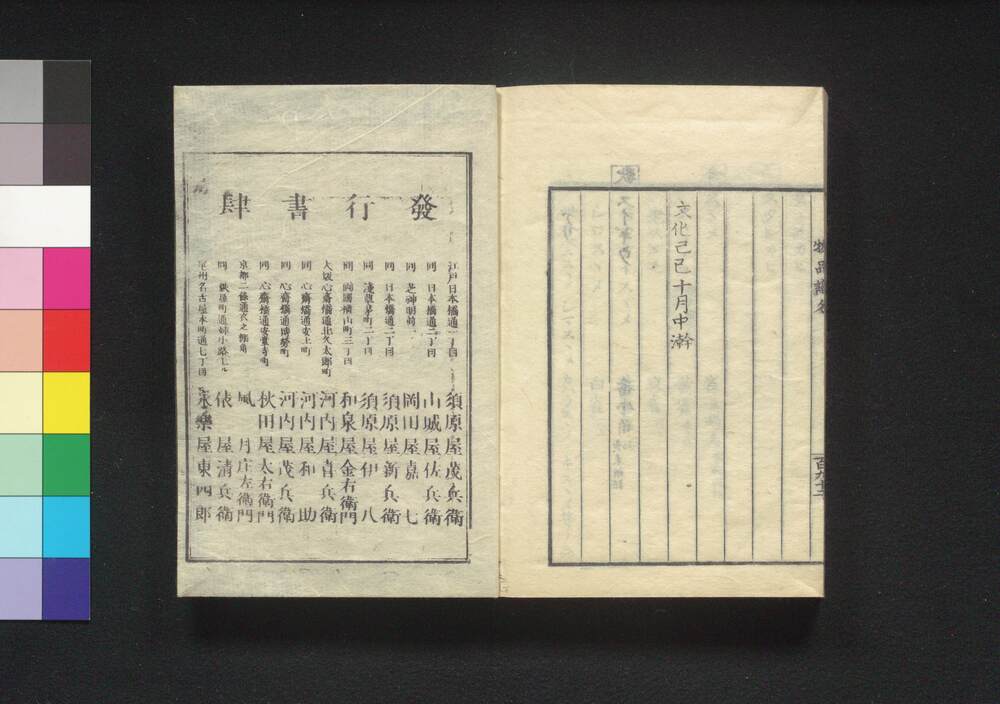 文化己巳十月中澣
物品識名
百九十二
發行書肆
江戸日本橋通一丁目 須原屋茂兵衛
同 日本橋通二丁目 山城屋佐兵衛
同 芝神明前 岡田屋嘉七
同 日本橋通二丁目 須原屋新兵衛
同 淺草茅町二丁目 須原屋伊八
同 両國横山町三丁目 和泉屋金右衛門
大坂心齋橋通北久太郎町 河内屋喜兵衛
同 心齋橋通安土町 河内屋和助
同 心齋橋通博勞町 河内屋茂兵衛
同 心齋橋通安堂寺町 秋田屋太右衛門
京都二條通衣之棚角 風月庄左衛門
同 通姉小路上ル 俵屋清兵衛
尾州名古屋本町通七丁目 永樂屋東四郎